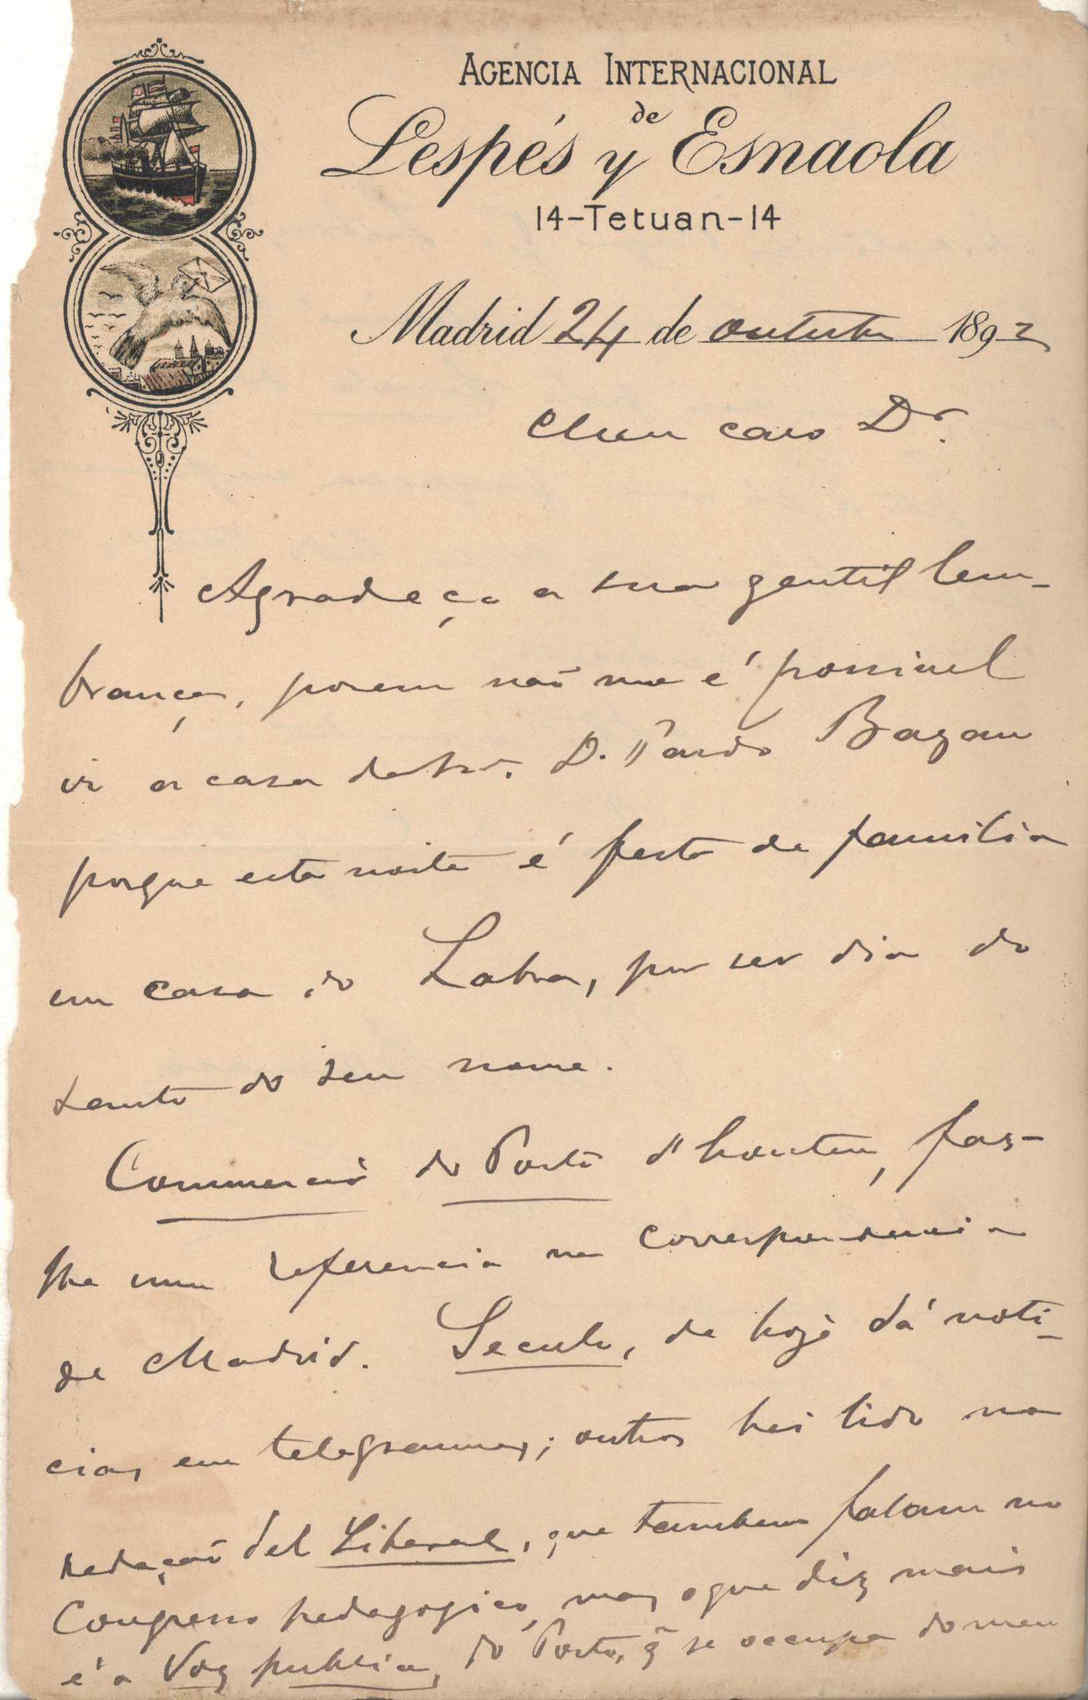 AGENCIA INTERNACIONAL
de
Lespés y Esnaola
14-Tetuan-14
Madrid 24 de outubro 1892
Meu caro Dr.
Agradeço a sua gentil lem-
brança, porem não me é possivel
ir a casa da Sra. D. Pardo Bazan
porque esta noite é festa de familia
em casa do Labra, por ser dia do
santo do seu nome.
Commercio do Porto d'hontem, faz-
lhe uma referencia na correspondencia
de Madrid. Seculo, de hoje dá noti-
cias em telegrammas; outros hei lido na
redação del Liberal, que tambem falam no
Congresso pedagogico, mas o que diz mais
é a Voz publica, do Porto, q̃ se occupa do meu